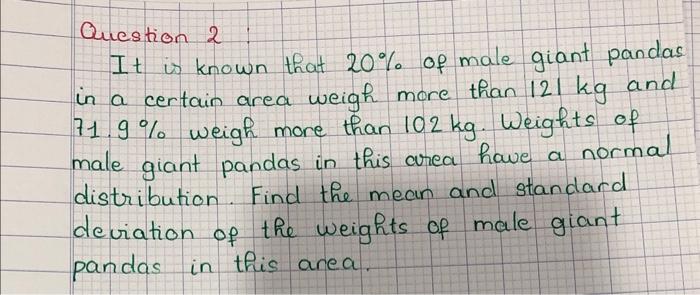 Question 2
It is known that 20% of male giant pandas
in a certain area weigh more than 121 kg and
71.9% weigh more than 102 kg. Weights of
male giant pandas in this area have a normal
distribution. Find the mean and standard
deviation of the weights of male giant
pandas in this area.